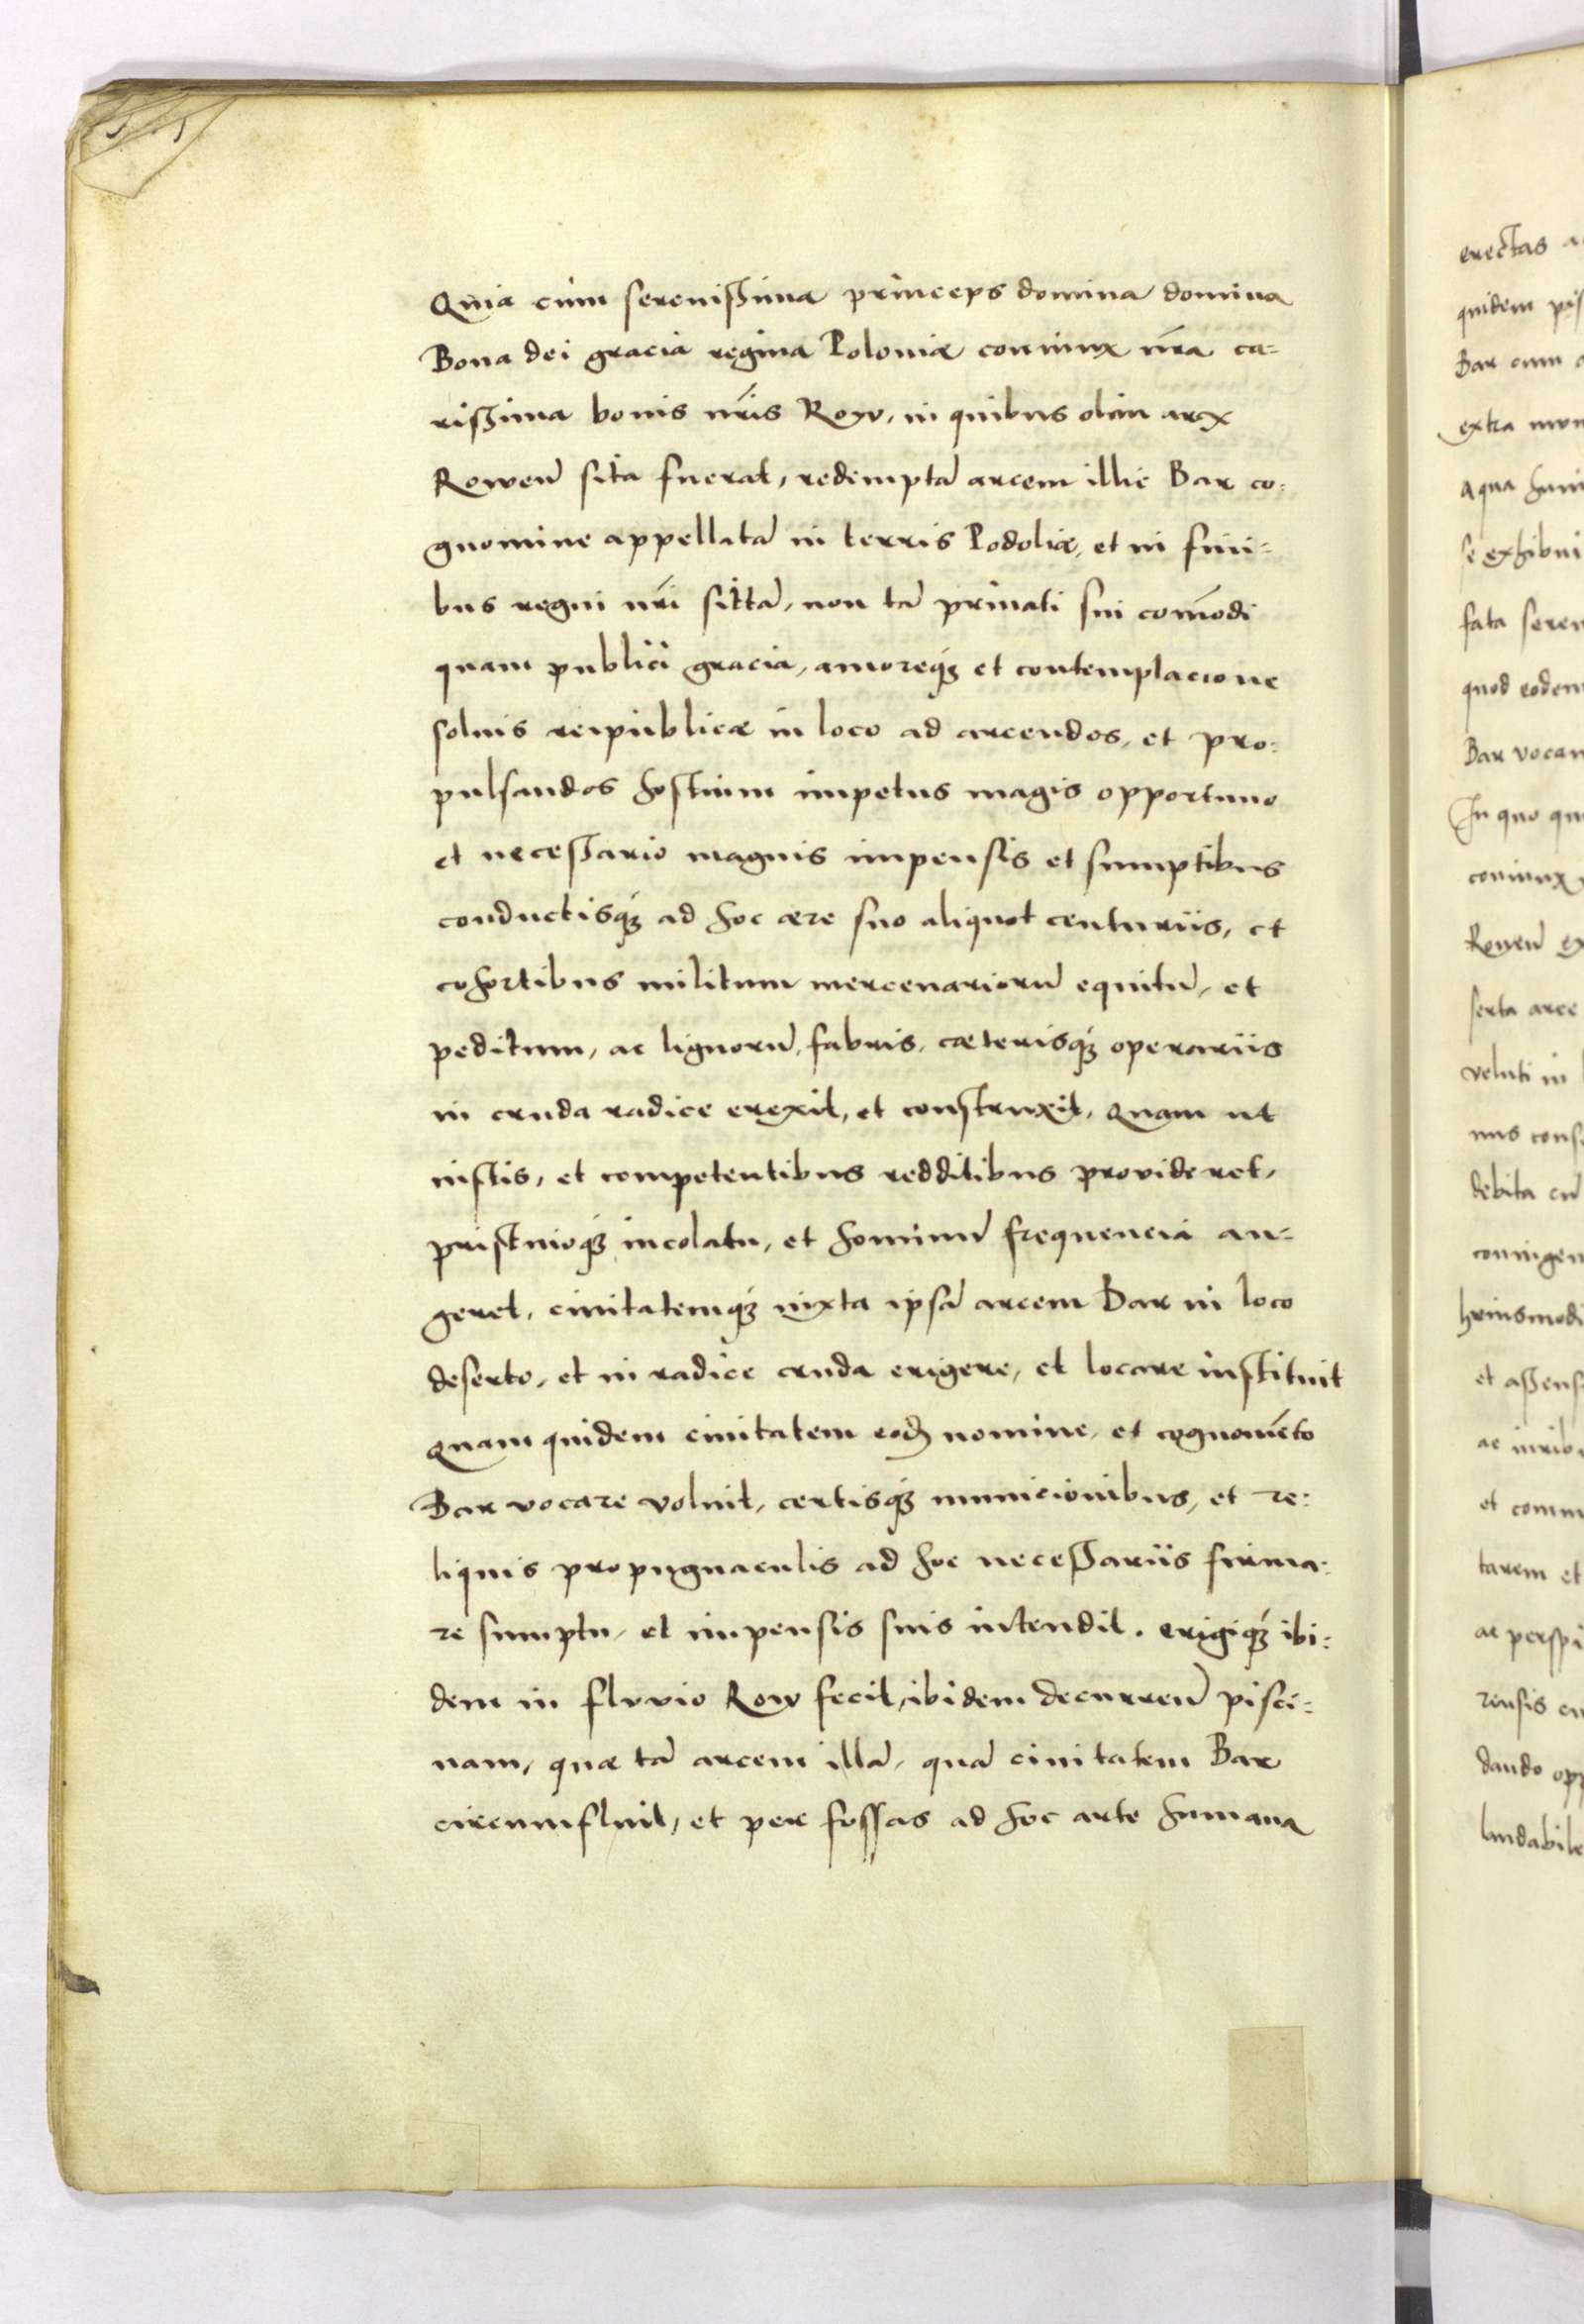 Quia cum serenissima princeps domina domina
Bona dei gracia regina Poloniæ coniunx nr̃a ca-
rissima bonis nr̃is Row, in quibus olim arx
Rowen̄ sita fuerat, redemptā arcem illic Bar co-
gnomine appellatā in terris Podoliæ, et in fini-
bus regni nr̃i sittā, non tā priuati sui com̄odi
quam publici gracia, amoreq; et contemplacione
solius reipublicæ in loco ad arcendos, et pro-
pulsandos hostium impetus magis opportuno
et necessario magnis impensis et sumptibus
conductisq; ad hoc ære suo aliquot centuriis, et
cohortibus militum mercenariorū equitū, et
peditum, ac lignorū, fabris, cæterisq; operariis
in cruda radice erexit, et construxit, Quam ut
iustis, et competentibus redditibus provideret,
pristinoq; incolatu, et hominū frequencia au-
geret, ciuitatemq; iuxta ipsā arcem Bar in loco
deserto, et in radice cruda erigere, et locare instituit
Quam quidem ciuitatem eod̄ nomine, et cognomēto
Bar vocare voluit, certisq; municionibus, et re-
liquis propugnaculis ad hoc necessariis firma-
re sumptu, et impensis suis intendit. erigiq; ibi-
dem in flvvio Row fecit, ibidem decurren̄ pisci-
nam, quæ tā arcem illā, quā ciuitatem Bar
circumfluit, et per fossas ad hoc arte humana
erectas
quidem
Bar cum
extra
aqua
se exhibui
fata seren
quod eodem
Bar vocan
In quo
coniunx
Rowen̄
serta arce
veluti in
debita cū
huiusmodi
et assens
et comm
tarem et
dando opp
laudabile